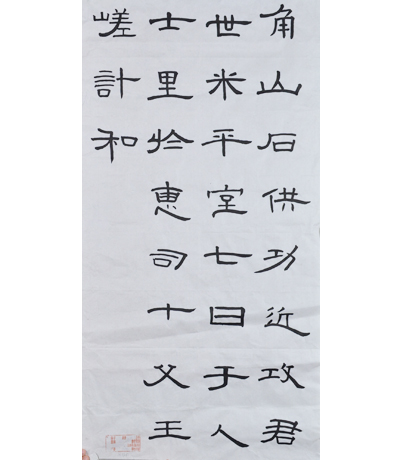 角山石供功近攻君
世米平室七曰于人
士里於恵司十父王
嵯計和